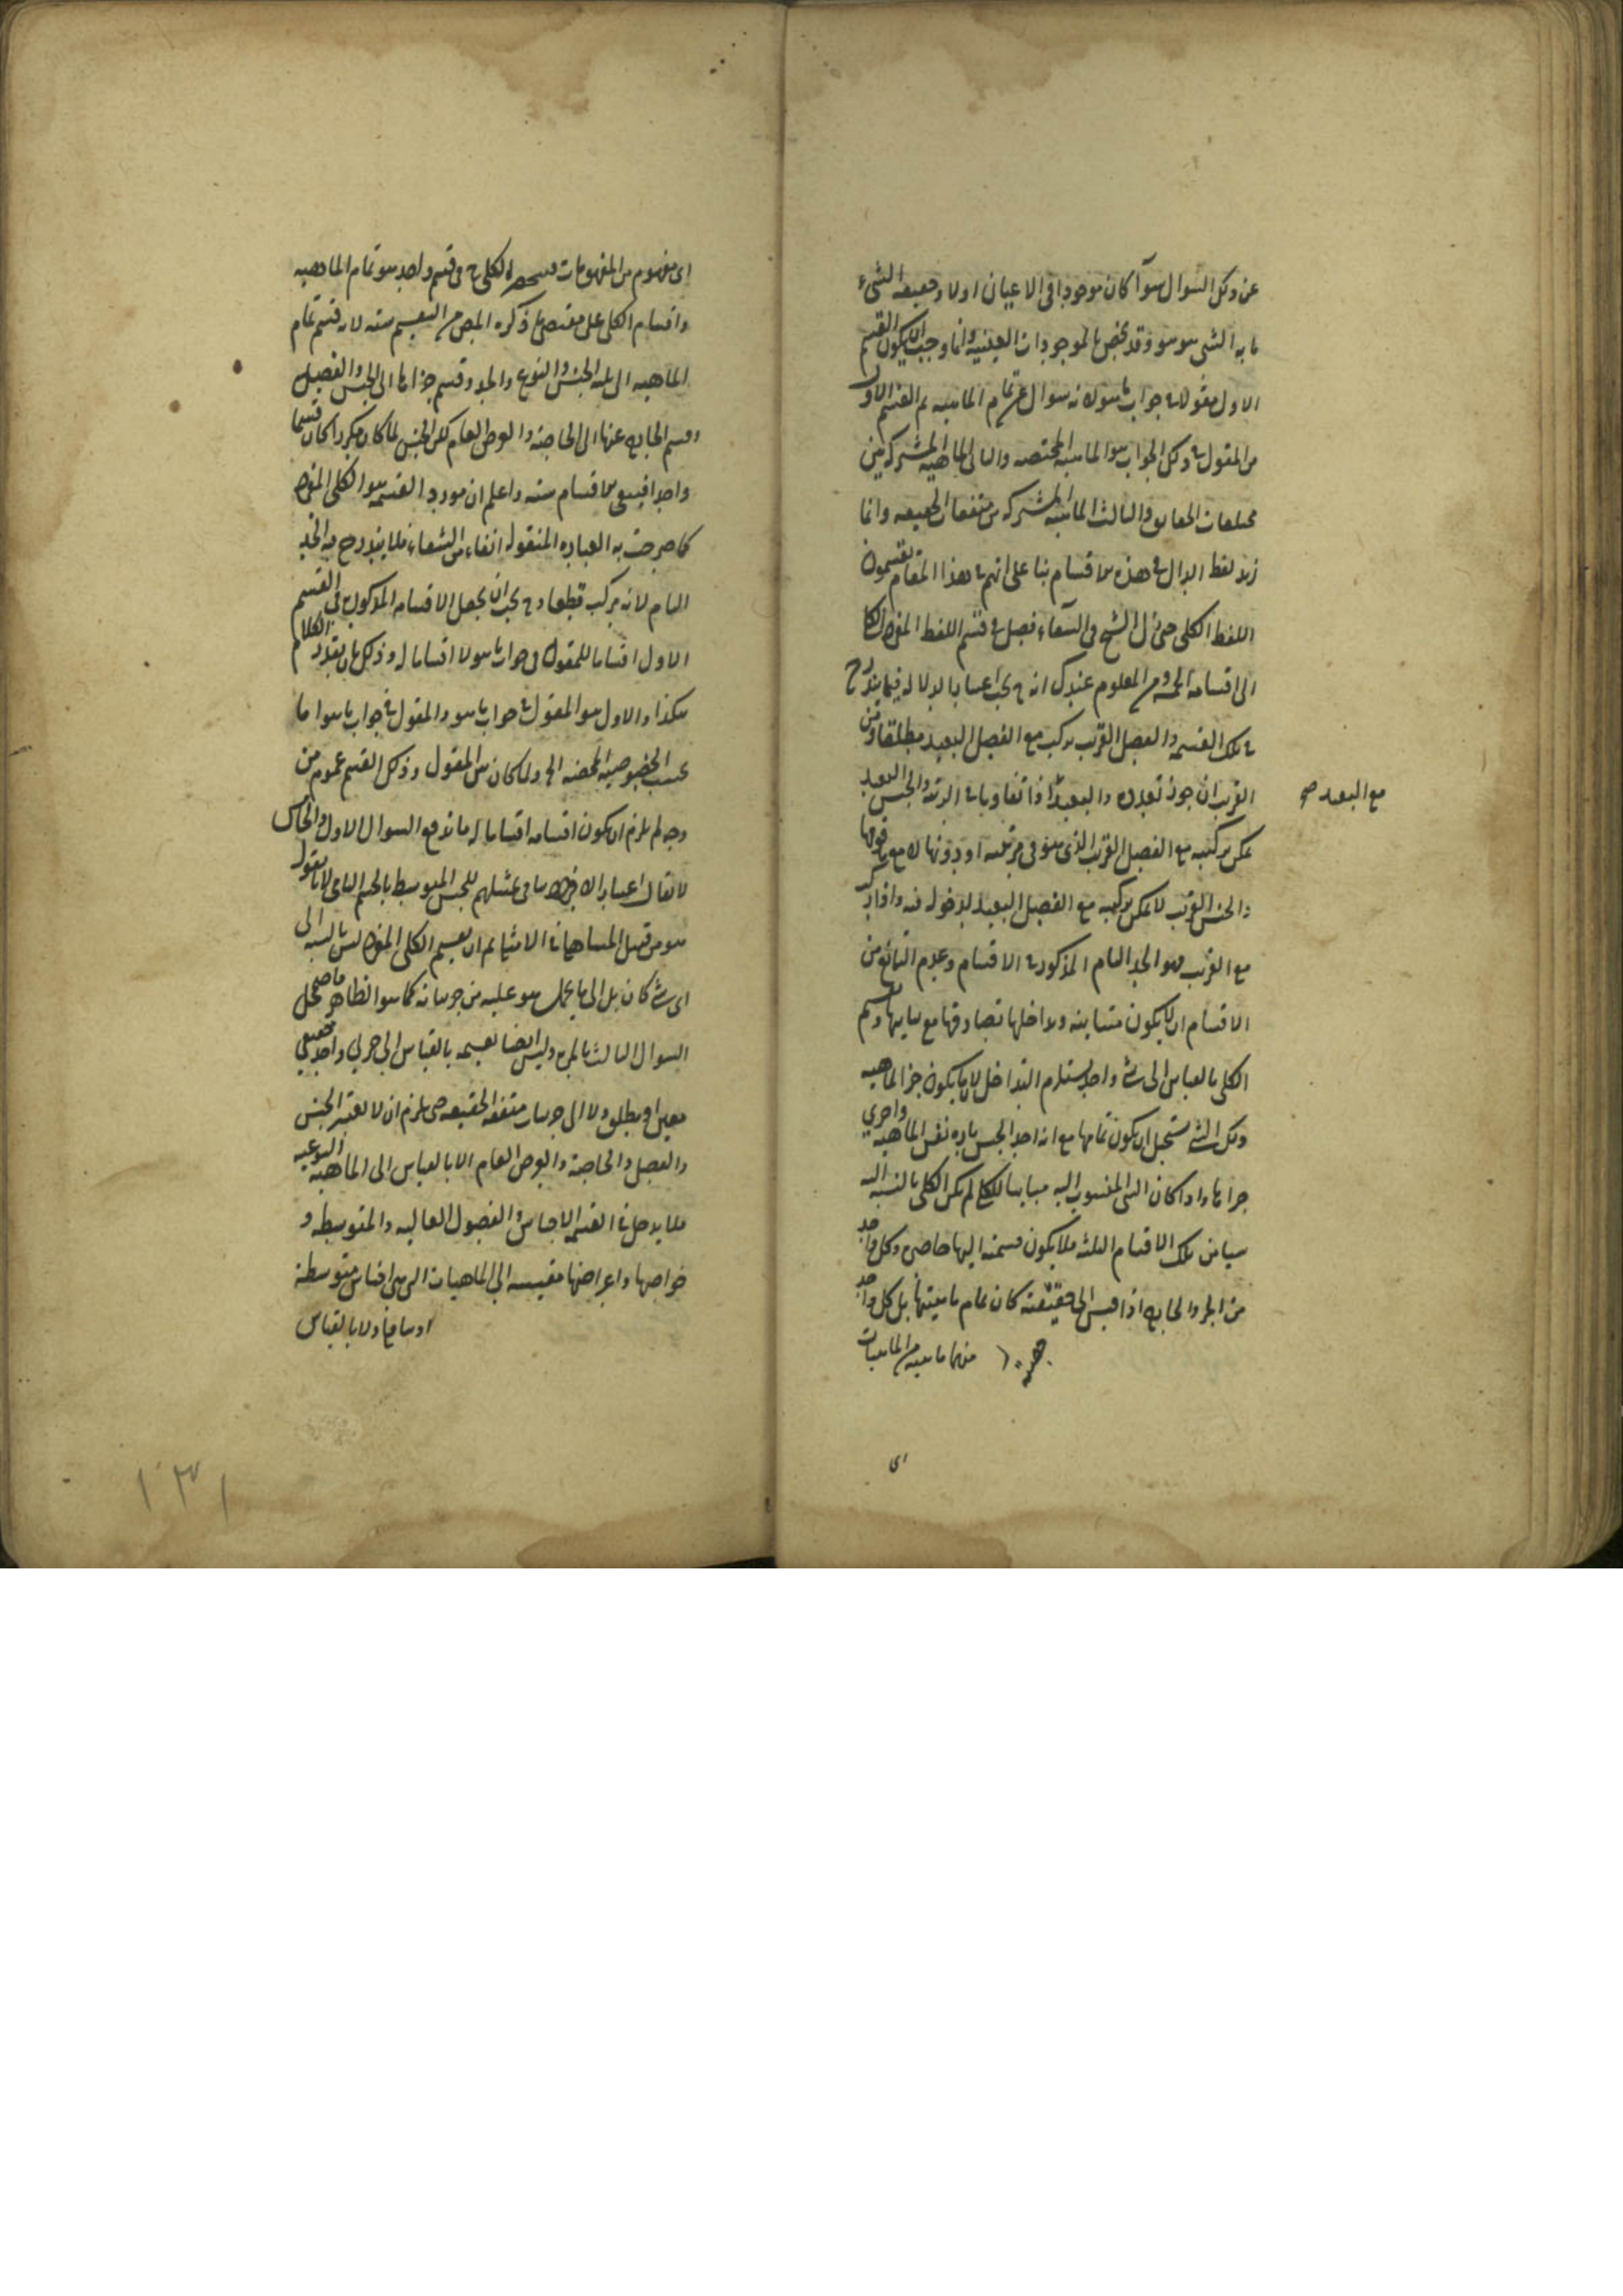 عن ذلك السوال سوآ كان موجودا فى الاعيان اولا وحقيقه الشىء
ما به الشى هو هو وقد يخص بالموجودات العينيه وانما وجب ان يكون القسم
الاول مقولا فى جواب ما هو لانه سوال عن تمام الماهيه ثم القسم الاول
من المقول فى ذلك الجواب هو الماهيه المختصه والثانى الماهيه المشتركه بين
مختلفات الحقايق والثالث الماهيه المشتركه بين متفقات الحقيقه وانما
زيد لفظ الدال فى هذه الاقسام بنا على انهم فى هذا المقام يقسمون
اللفظ الكلى حتى قال الشيخ فى الشفاء فصل فى قسم اللفظ المفرد الكلى
الى اقسامه الخمسه ومن المعلوم عندك انه ح يجب اعتبار الدلاله فيما يندرج
فى تلك القسمه والفصل القريب يركب مع الفصل البعيد مطلقا ومن
القريب ان جوز تعدده والبعيد اذا تفاوتا فى الرتبه والجنس البعيد
مع البعيد صح
يمكن تركبه مع الفصل القريب الذى هو فى مرتبته او دونها لا مع ما فوقها
والجنس القريب لا يمكن تركبه مع الفصل البعيد لدخوله فيه واذا تركب
مع القريب فهو الحد التام المذكور فى الاقسام وعدم التمانع من
الاقسام ان لا يكون متباينه وتداخلها تصادقها مع تباينها وقسم
الكلى بالقياس الى شئ واحد يستلزم التداخل لان ما يكون جزء الماهيه
ذلك الشئ يستحيل ان يكون تمامها مع انه احد الجنس تاره نفس الماهيه واخرى
جزءها واذا كان الشى المنسوب اليه مباينا للكلى لم يكن الكلى بالنسبه اليه
شيا من تلك الاقسام الثلثه فلا يكون قسمته اليها حاصره وكل واحد
من الجزء والخارج اذا قيس الى حقيقته كان تمام ماهيتها بل كل واحد
منهما ماهيه من الماهيات
اى
اى مفهوم من المفهومات فينحصر الكلى ح فى قسم واحد هو تمام الماهيه
واقسام الكلى على مقتضى ما ذكره المص من التقسيم سته لانه قسم تمام
الماهيه الى ثلثه الجنس والنوع والحد وقسم جزءها الى الجنس والفصل
وقسم الخارج عنها الى الخاصه والعرض العام لكن الجنس لما كان مكررا كان قسما
واحدا فبقى الاقسام سته واعلم ان مورد القسمه هو الكلى المفرد
كما صرحت به العباره المنقوله انفا من الشفاء فلا يندرج فيه الحد
التام لانه مركب قطعا وح يجب ان يجعل الاقسام المذكوره فى القسم
الاول اقساما للمقول فى جواب ما هو لا اقساما له وذلك بان يقدر الكلام
هكذا والاول هو المقول فى جواب ما هو والمقول فى جواب ما هو اما
بحسب الخصوصيه المحضه الخ ولما كان بين المقول وذلك القسم عموم من
وجه لم يلزم ان يكون اقسامه اقساما له فاندفع السوال الاول والخامس
لا يقال اعتبار الافراد ينافى تمثيلهم للجنس المتوسط بالجسم النامى لانا نقول
هو من قبيل المساهلة فى الامثله ثم ان تقسيم الكلى المفرد ليس بالنسبه الى
اى شئ كان بل الى ما يحمل هو عليه من جزئياته كما هو الظاهر فاضمحل
السوال الثالث بالمره وليس ايضا تقسيمه بالقياس الى جزئى واحد حقيقى
معين او مطلق ولا الى جزئيات متفقه الحقيقه حتى يلزم ان لا يعتبر الجنس
والفصل والخاصه والعرض العام الا بالقياس الى الماهيه النوعيه
فلا يدخل فى القسمه الاجناس والفصول العاليه والمتوسطه و
خواصها واعراضها مقيسه الى الماهيات التى هى اجناس متوسطة
او سافله ولا بالقياس
١٣١